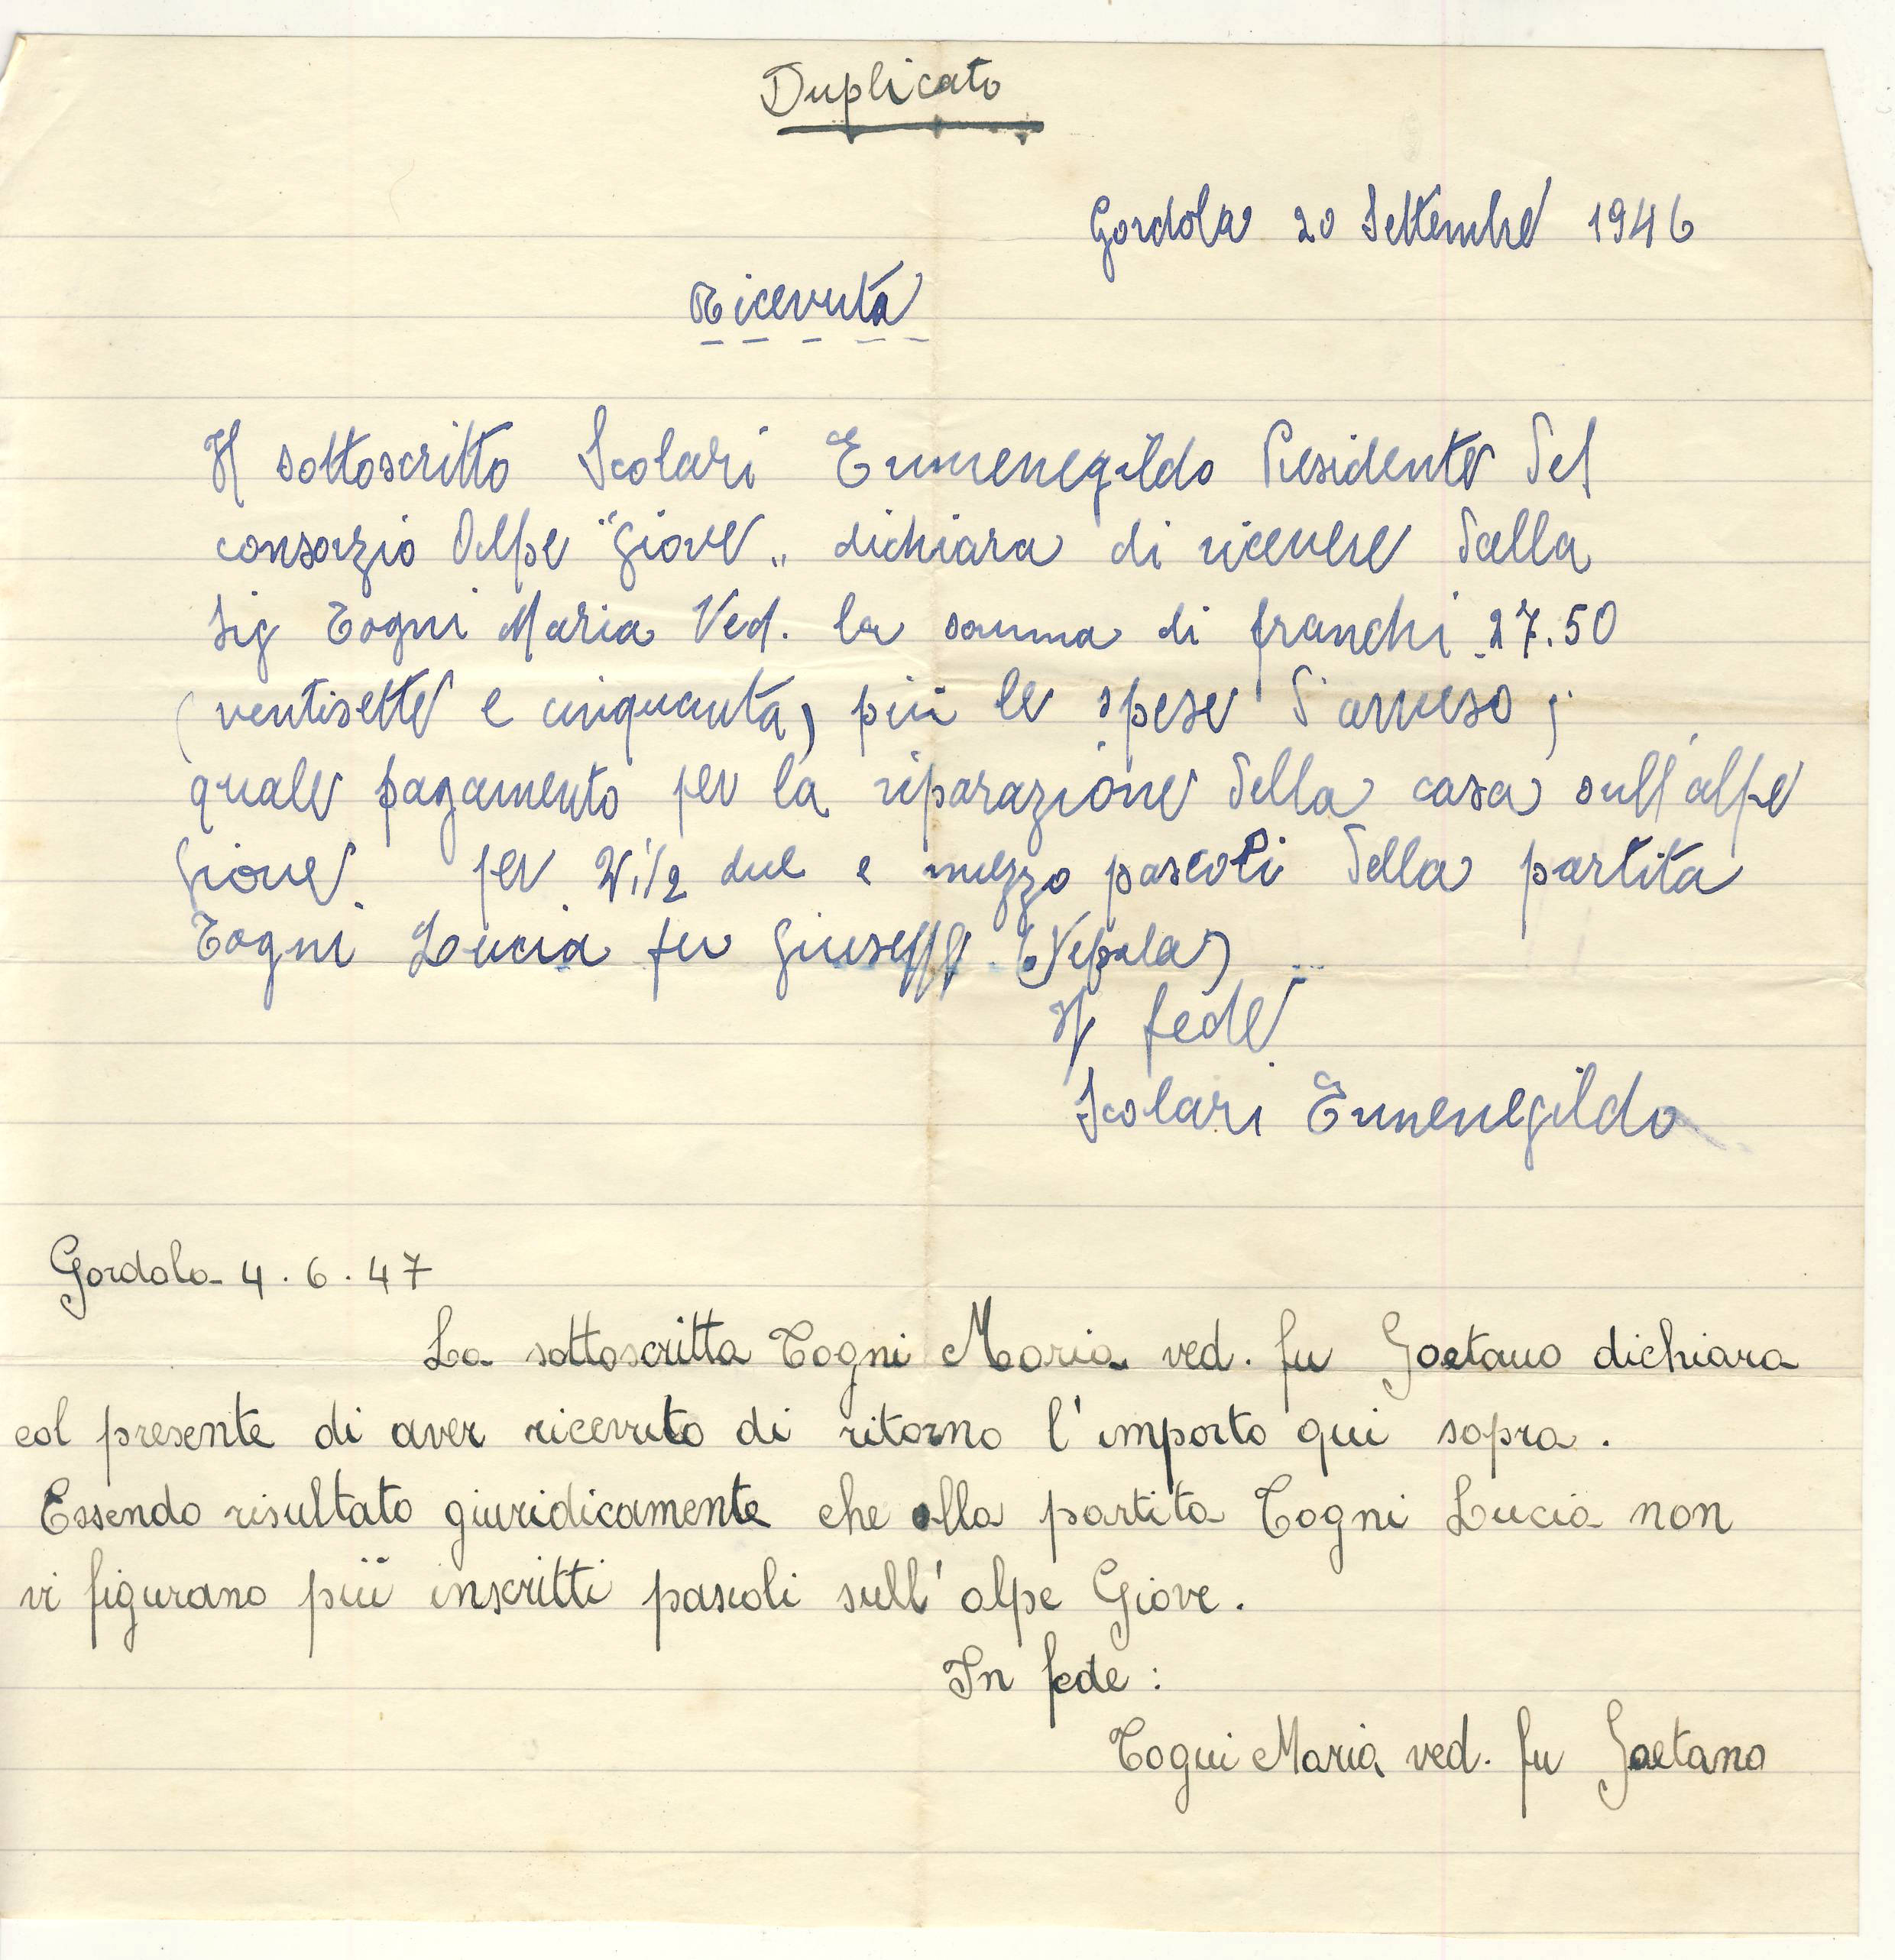 Duplicato
Gordola 20 Settembre 1946
Ricevuta
Il sottoscritto Scolari Ermenegildo Presidente del
consorzio Alpe "Giove„ dichiara di ricevere dalla
Sig Togni Maria Ved. la somma di franchi 27.50
(ventisette e cinquanta) più le spese d'avviso;
quale pagamento per la riparazione della casa sull'alpe
Giove. per 2 1/2 due e mezzo pascoli della partita
Togni Lucia fu Giuseppe.
In fede
Scolari Ermenegildo
Gordola 4.6.47
La sottoscritta Togni Maria ved. fu Gaetano dichiara
col presente di aver ricevuto di ritorno l'importo qui sopra.
Essendo risultato giuridicamente che alla partita Togni Lucia non
vi figurano più inscritti pascoli sull'alpe Giove.
In fede:
Togni Maria ved. fu Gaetano